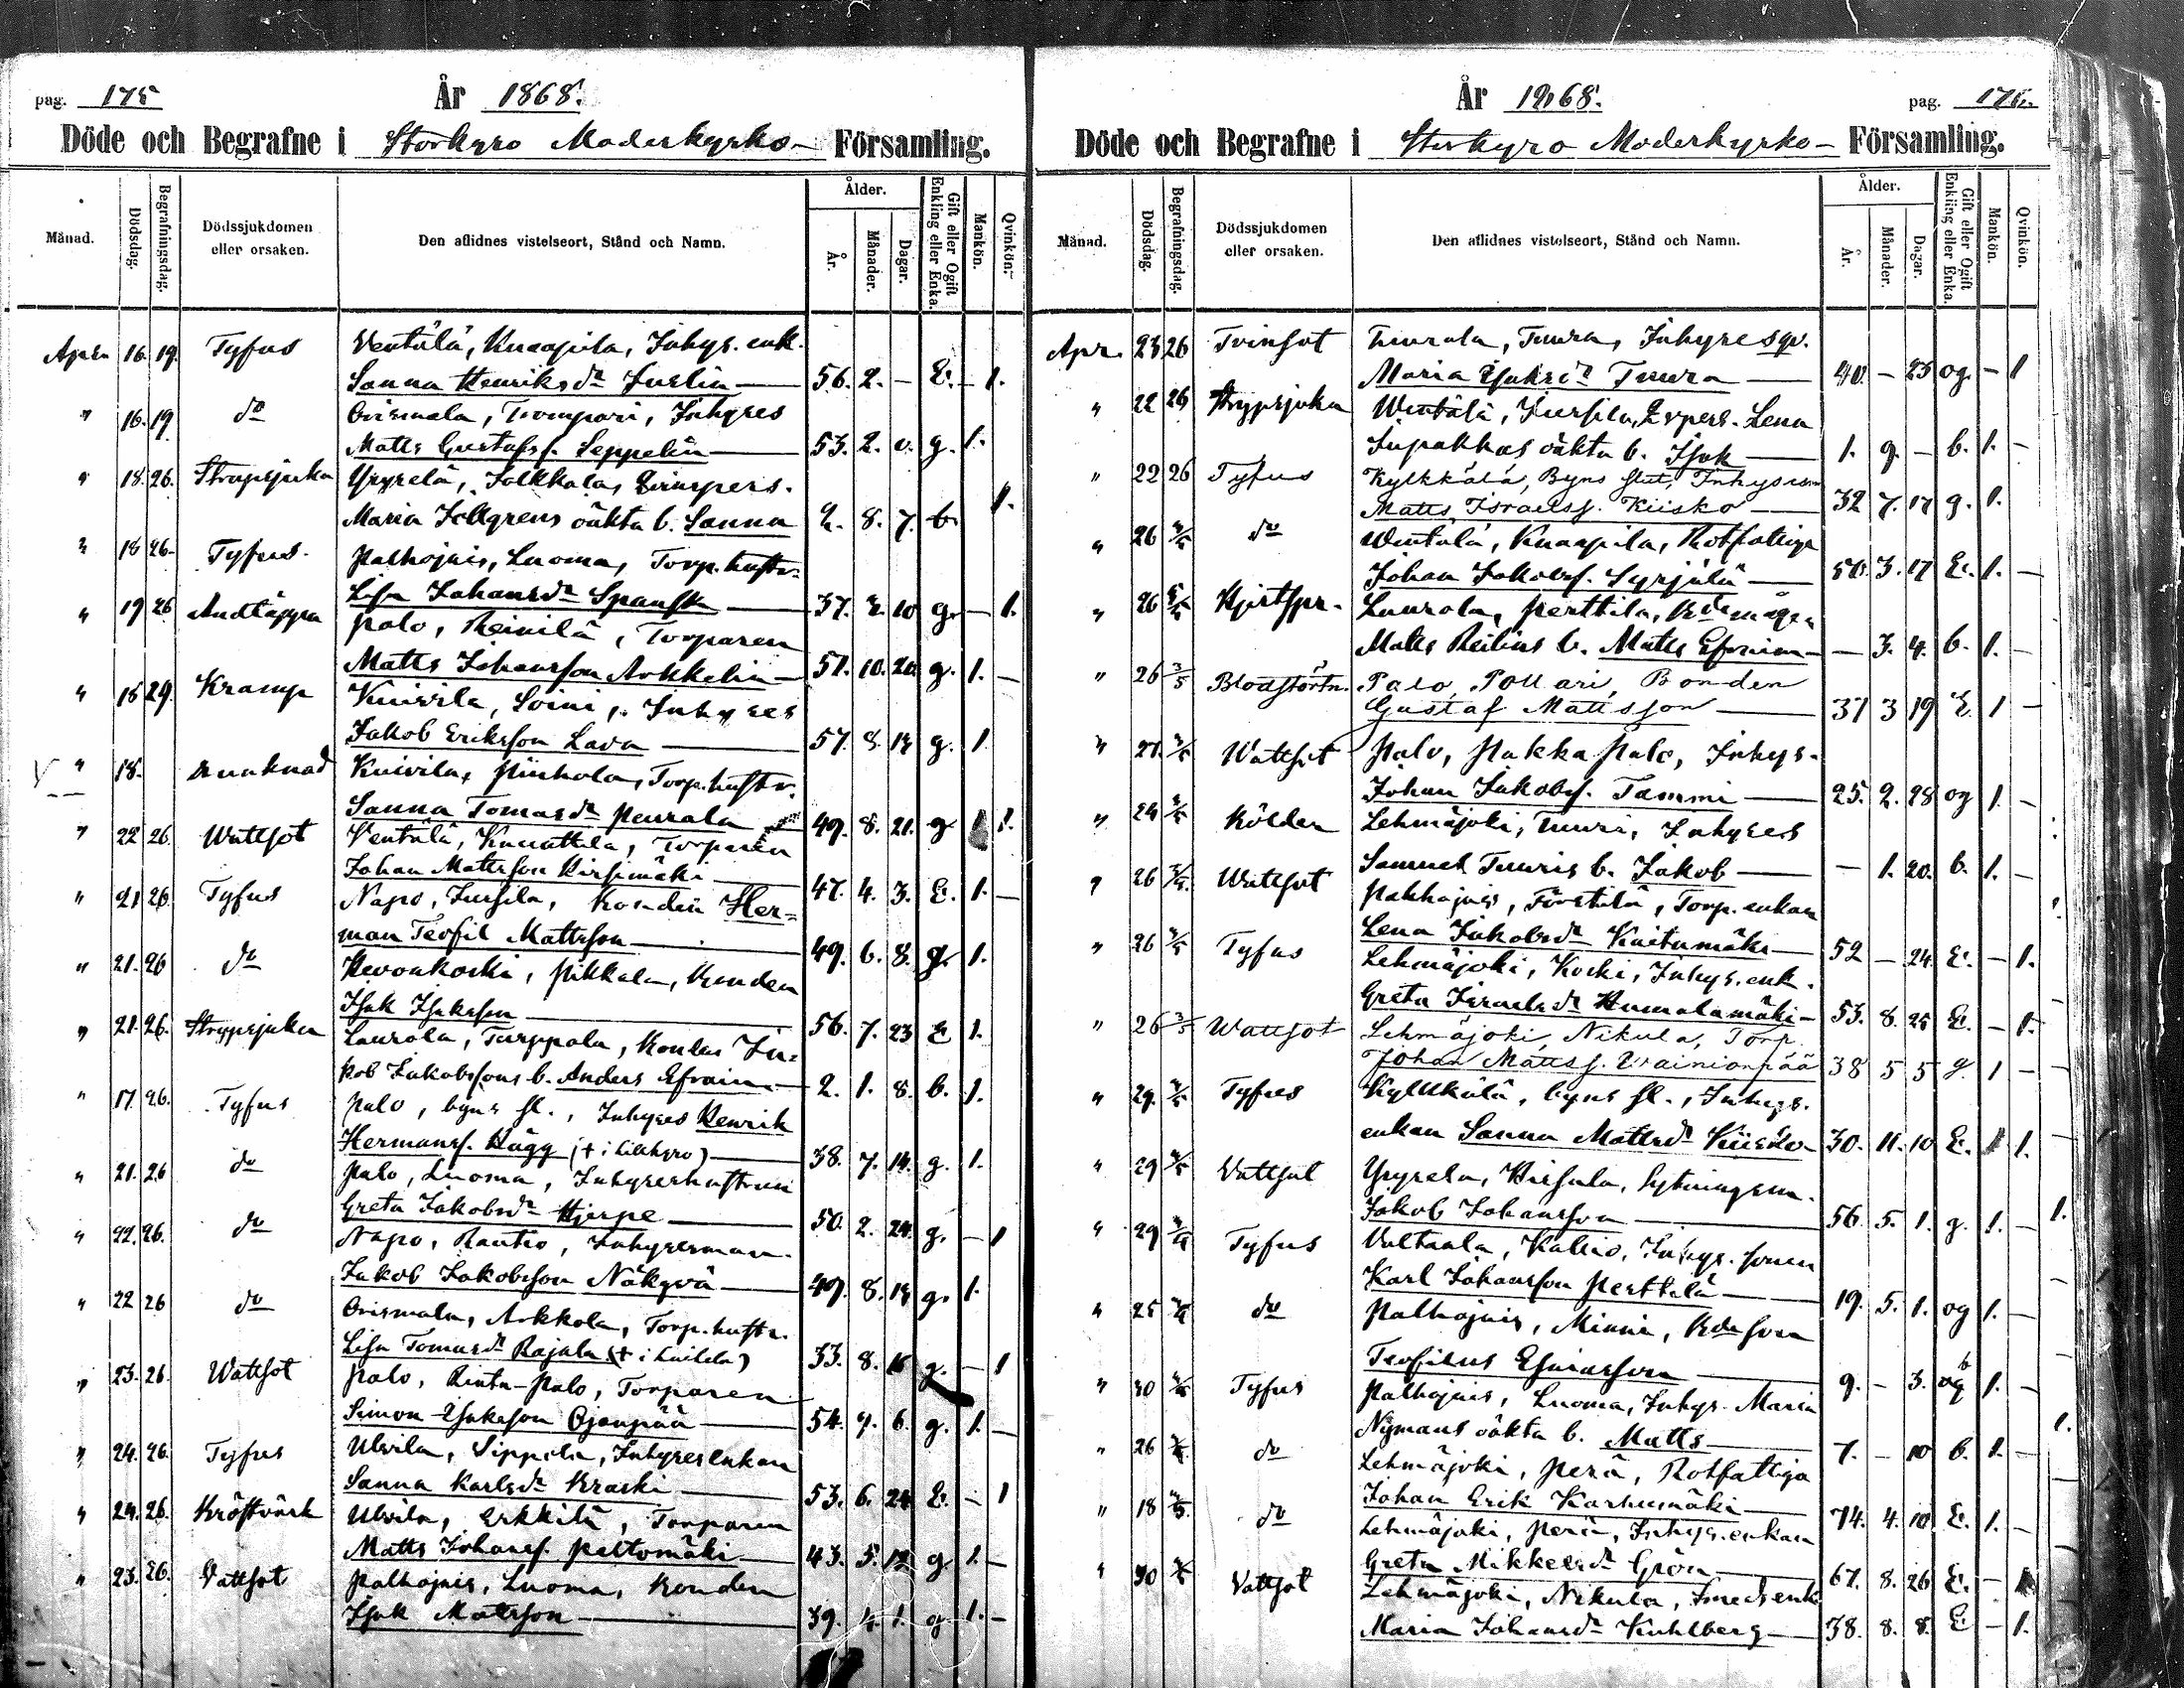 pag. 175 År 1868.
Döde och Begrafne i Storkyro Moderkyrko- Församling.
Månad. Dödsdag. Begrafningsdag. Dödssjukdomen eller orsaken. Den aflidnes vistelseort, Stånd och Namn. Ålder. År. Månader. Dagar. Gift eller Ogift Enkling eller Enka. Mankön. Qvinkön.
16. 19. Tyfus Ventälä, Knaapila, Inhys. enk.
Sanna Henriksdr 56. 2. - E. - 1.
" 16. 19 do Orismala, Inhyses
Matts Gustafss. Seppelin 53. 2. g. 1.
" 18. 26. Strypsjuka
Maria oäkta b. Sanna 2. 8. 7. b. 1.
" 18 26 Tyfus Palhojais, Luoma, Torp. hustr.
Lisa Johansdr Spansk 37. 2. 10 g. - 1.
" 19 26 Andtäppa Palo, Reinilä, Torparen
Matts Johansson 51. 10. 20. g. 1. -
" 29. Kramp Kuivila, Soini, Inhyses
Jakob Eriksson Lava 57. 8. g. 1
" 18. Drunknad Kuivila, Torp. hustr.
Sanna Tomasdr Peurala 49. 8. 21. g 1.
" 22 26. Wattsot Ventälä, Torparen
Johan Mattsson Kirsimäki 47. 4. 3. E. 1. -
" 21 26. Tyfus Napo, Jussila, Bonden Her=
man Teofil Mattsson 49. 6. 8. g. 1.
" 21. 26 do Hevonkoski, Pikkala, Bonden
Isak Isaksson 56. 7. 23 E 1.
" 21. 26. Strypsjukan Laurola, Turppala, Bondens Ja=
kob Jakobssons b. Anders Efraim 2. 1. 8. b. 1.
" 17. 26. Tyfus Palo, byns sl., Inhyses Henrik
Hermanss. Hägg († i Lillkyro) 38. 7. 14. g. 1.
" 21. 26 do Palo, Luoma, Inhyseshustrun
Greta Jakobsdr Hjerpe 50. 2. 24. g. - 1
" 22. 26. do Napo, Rautio, Inhysesman
Jakob Jakobsson 49. 8. g. 1.
" 22 26 do Orismala, Arkkola, Torp. hustr.
Lisa Tomasdr Rajala 33. 8. g. - 1
" 23. 26. Wattsot Palo, Rinta-Palo, Torparen
Simon Isaksson Ojanpää 54. 6. g. 1. -
" 24. 26. Tyfus Ulvila, Sippola, Inhysesenkan
Sanna Karlsdr Kraski 53. 6. 24. E. - 1
" 24. 26. Ulvila, Erkkilä, Torparen
Matts Johanss. Peltomäki 43. 5. g 1. -
" 23. 26. Vattsot Palhojais, Luoma, Bonden
Isak Mattsson 39. 4. 1. g. 1. -
År 1868. pag. 176.
Döde och Begrafne i Storkyro Moderkyrko- Församling.
Månad. Dödsdag. Begrafningsdag. Dödssjukdomen eller orsaken. Den aflidnes vistelseort, Stånd och Namn. Ålder. År. Månader. Dagar. Gift eller Ogift Enkling eller Enka. Mankön. Qvinkön.
Apr. 23 26 Tvinsot Tuurala, Tuura, Inhysesqv.
Maria Isaksdr Tuura 40. - 25 og. - 1
" 22 26 Strypsjuka Wentälä, Jussila, Lena
oäkta b. Isak 1. 9. - b. 1. -
" 22 26 Tyfus Kylkkälä, Byns slut, Inhysesm
Matts Israelss. Kiisko 32 7. 17 g. 1.
" 26 do Wentälä, Knaapila, Rotfattiga
Johan Jakobss. Syrjälä 50. 3. 17 E. 1. -
" 26 Laurola, Perttila, Bdemågen
Matts b. Matts Efraim - 3. 4. b. 1. -
" 26 3/5 Blodstörtn. Palo, Pollari, Bonden
Gustaf Mattsson 37 3 19 E. 1 -
" 27. Wattsot Palo, Pukkapalo, Inhys.
Johan Jakobss. Tammi 25. 2. 28 og 1. -
" 24 Kölden Lehmäjoki, Tuuri, Inhyses
Samuel Tuuris b. Jakob - 1. 20. b. 1. -
" 26 Wattsot Palhojais, Torp. enkan
Lena Jakobsdr Kaitumäki 52 - 24. E. - 1.
" 26 Tyfus Lehmäjoki, Koski, Inhys. enk.
Greta Israelsdr Humalamäki 53. 8. 25 E. - 1.
" 26 3/5 Wattsot Lehmäjoki, Nikula, Torp.
Johan Mattss. Wainionpää 38 5 5 g. 1 -
" 29. Tyfus Kylkkälä, byns sl., Inhys.
enkan Sanna Mattsdr Kiisko 30. 11. 10 E. 1.
" 29 Vattsot Yryselä, Hirsula, Sytningsm.
Jakob Johansson 56. 5. 1. g. 1. -
" 29 Tyfus Valtaala, Kallio, Inhys. sonen
Karl Johansson Perttilä 19. 5. 1. og 1. -
" 25 do Palhojais, Minni, Bdeson
Teofilus Esaiasson 9. - 3. 1. -
" 30 Tyfus Palhojais, Luoma, Inhys. Maria
Nymans oäkta b. Matts 7. - 10 b. 1. -
" 26 do Lehmäjoki, Perä, Rotfattiga
Johan Erik Karhumäki 74. 4. 10 E. 1. -
" 18 do Lehmäjoki, Perä, Inhys. enkan
Greta Mikkelsdr Grön 67. 8. 26 E. -
" 30 Vattsot Lehmäjoki, Nikula, Smedsenk.
Maria Johansdr Kuhlberg 38. 8. 8. E - 1.